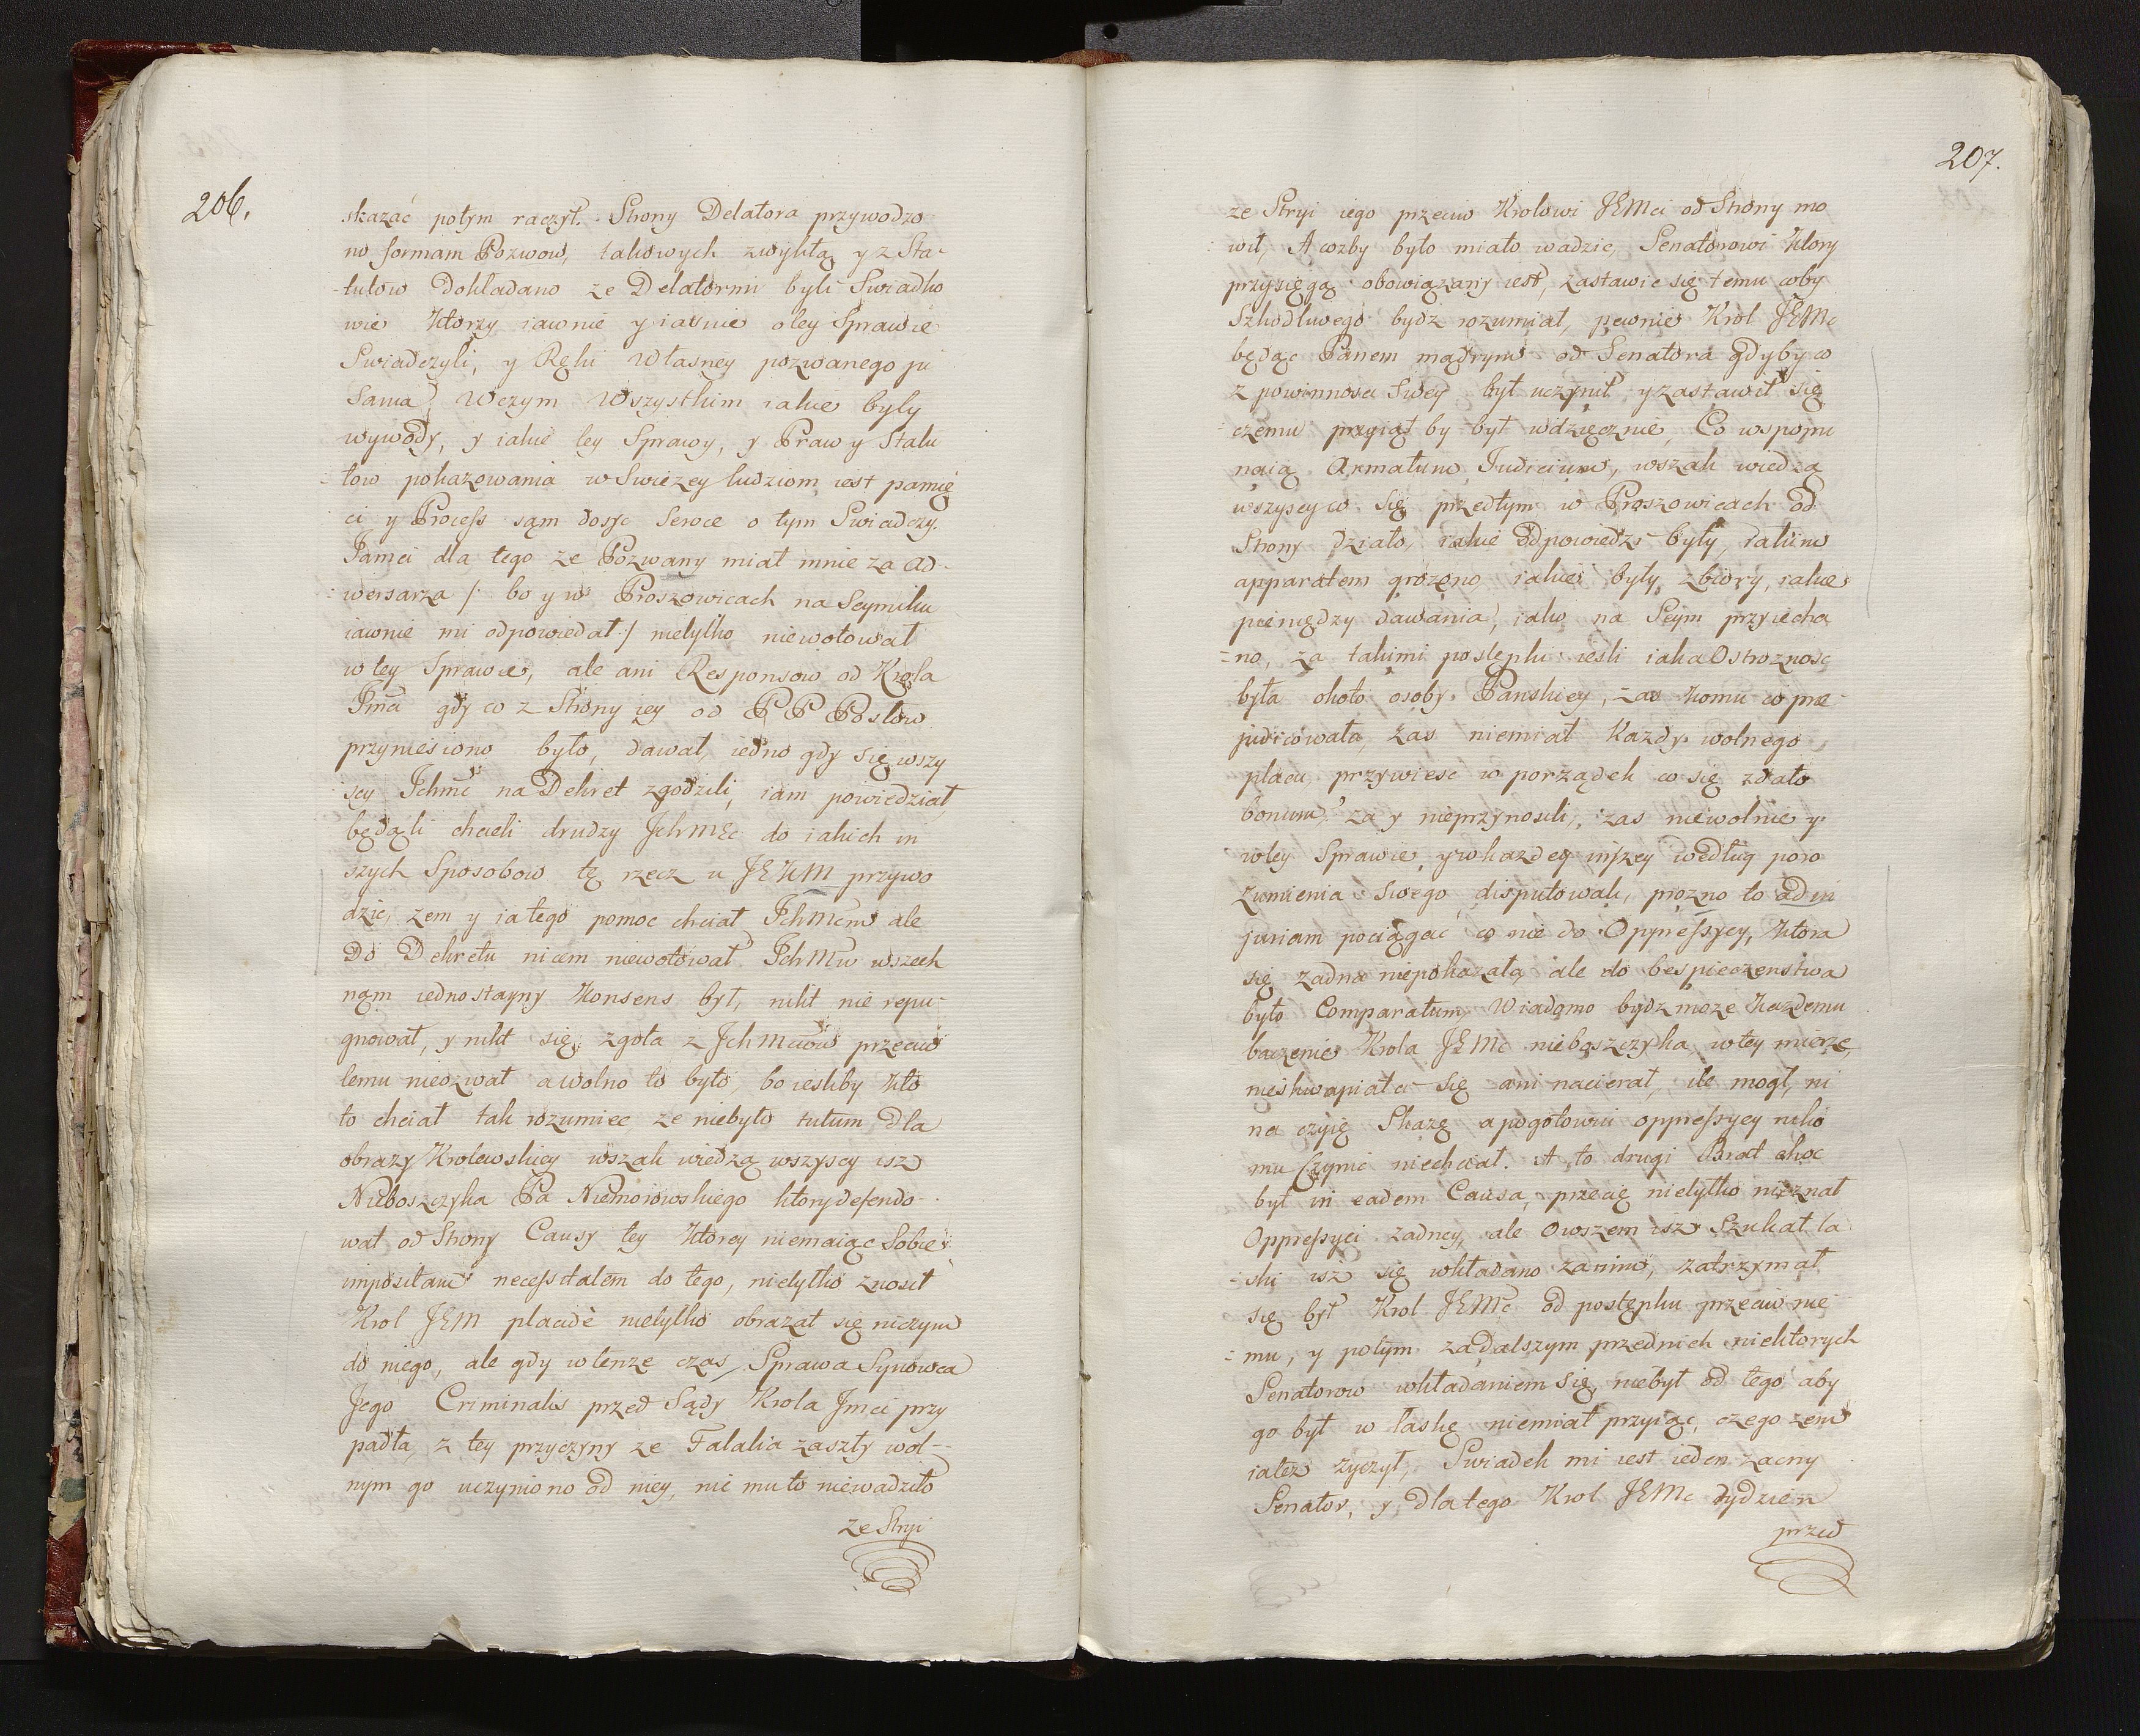 206.
skazać potym raczył. Strony Delatora przywodzo
no formam Pozwow, takowych zwykłą y z Sta-
-tutow Dokładano ze Delatormi byli Swiadko
wie Ktorzy iawnie y iasnie o tey Sprawie
Swiadczyli, y Ręki Własney pozwanego pi
sania, Wczym Wszystkim iakie były
wywody, y iakie tey Sprawy, y Praw y Statu
tow pokazowania w Swiezey ludziom iest pamię
ci y Process sąm dosyc Seroce o tym Swiadczy.
Jamci dla tego ze Pozwany miał mnie za Ad-
wersarza /: bo y w Proszowicach na Seymiku
iawnie mi odpowiedał :/ nietylko niewotował
w tey Sprawie, ale ani Responsow od Krola
Jmci gdy co z Strony iey od P P Posłow
przyniesiono było, dawał, iedno gdy się wszy
scy Ichmc na Dekret zgodzili, iam powiedział,
będąli chcieli drudzy Ichmśc do iakich in
szych Sposobow tę rzecz u JEKM przywo
dzic, zem y ia tego pomoc chciał Ichmcm ale
Do Dekretu nicem niewotował Ichmw wszech
nąm iednostayny Konsens był, nikt nie repu-
gnował, y nikt się zgoła z Ichmciow przeciw
temu nieozwał a wolno to było, bo iesliby kto
to chciał tak rozumiec ze niebyło tutum dla
obrazy Krolewskiey wszak wiedzą wszyscy isz
Nieboszczyka Pa Niemoiowskiego ktory defendo-
wał od Strony Causy tey Ktorey niemaiąc Sobie
impositam necessitatem do tego, nietylko znosił
Krol JEM placide nietylko obrazał się niczym
do niego, ale gdy w tenze czas Sprawa Synowca
Jego Criminalis przed Sądy Krola Jmci przy
padła, z tey przyczyny ze Fatalia zaszły wol-
nym go uczyniono od niey, nic mu to niewadziło
ze Stryi
207.
ze Stryi iego przeciw Krolowi JEMci od Strony mo
wił, A cozby było miało wadzic, Senatorowi Ktory
przysięgą obowiązany iest, zastawic się temu coby
Szkodliwego bydz rozumiał, pewnie Krol JEMc
będąc Panem mądrym od Senatora gdyby co
z powinnosci Swey był uczynił y zastawił się
czemu przyiął by był wdzięcznie, Co wspomi
naią Armatum Judicium, wszak wiedzą
wszyscy co się przedtym w Proszowicach od
Strony działo, iakie Odpowiedzi były, iakim
apparatem grozono, iakie były zbiory, iakie
pieniędzy dawania, iako na Seym przyiecha
-no, za takimi postępki iesli iaka Ostroznosc
była około osoby Panskiey, zas komu co prae
judicowała, zas niemiał Kazdy wolnego
placu przywiesc w porządek co się zdało
bonum, za y nieprzynosili, zas niewolnie y
w tey Sprawie y w kazdey inszey według poro
zumienia Swego disputowali, prozno to ad in
juriam pociągac co nie do Oppressyey, Ktora
się zadna niepokazała, ale do bespieczenstwa
było Comparatum. Wiadomo bydz moze Kazdemu
baczenie Krola JEMc nieboszczyka w tey mierze,
nieskwapiał się ani nacierał, ile mogł, ni
na czyię Skazę a pogotowiu oppressyey niko
mu Czynic niechciał. A to drugi Brat choc
był in eadem Causa, przecię nietylko nieznał
Oppressyei zadney, ale Owszem isz Szukał ła
-ski isz się wkładano zanim, zatrzymał
się był Krol JEMc od postępku przeciw nie
-mu, y potym zadalszym przednich niektorych
Senatorow wkładaniem się, niebył od tego aby
go był w łaskę niemiał przyiąc, czego zem
iatez zyczył, Swiadek mi iest ieden zacny
Senator, y dlatego Krol JEMc tydzien
przed